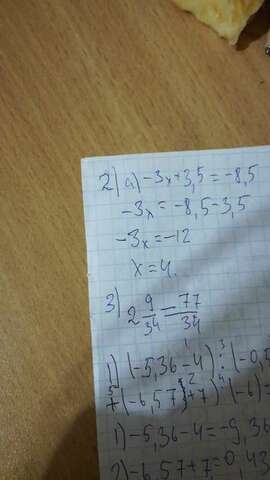 2) а) -3x+3,5=-8,5
-3x=-8,5-3,5
-3x=-12
x=4.
3) 2 9/34 = 77/34
1) (-5,36-4):(-0,5
+(-6,57+7)·(-6)=
1) -5,36-4=-9,36
2) -6,57+7=0,43